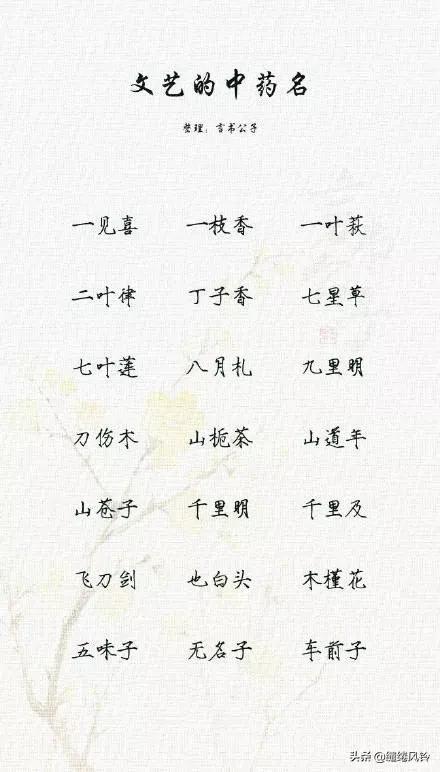 文艺的中药名
整理：言书公子
一见喜 一枝香 一叶萩
二叶律 丁子香 七星草
七叶莲 八月札 九里明
刀伤木 山扼茶 山道年
山苍子 千里明 千里及
飞刀剑 也白头 木槿花
五味子 无名子 车前子
头条@缱绻风铃